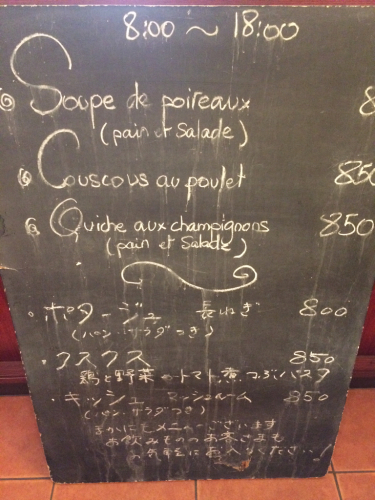 8:00 〜 18:00
Soupe de poireaux 8
(pain et Salade)
Couscous au poulet 850
Quiche aux champignons 850
(pain et Salade)
・ポタージュ 長ねぎ 800
(パン・サラダつき)
・クスクス 850
鶏と野菜のトマト煮 つぶパスタ
・キッシュ マッシュルーム 850
(パン・サラダつき)
ほかにもメニューございます
お飲みもののお客さまも
お気軽にお入りください!